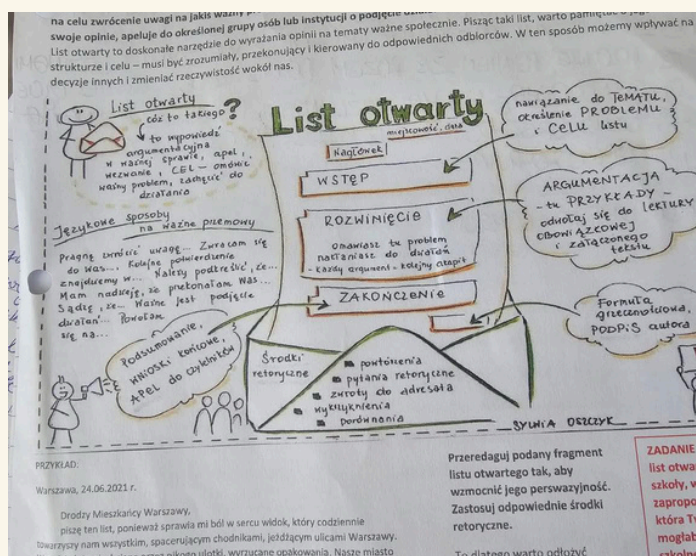 na celu zwrócenie uwagi na jakiś ważny
swoje opinie, apeluje do określonej grupy osób lub instytucji o podjęcie
List otwarty to doskonałe narzędzie do wyrażania opinii na tematy ważne społecznie. Pisząc taki list, warto pamiętać o
strukturze i celu – musi być zrozumiały, przekonujący i kierowany do odpowiednich odbiorców. W ten sposób możemy wpływać na
decyzje innych i zmieniać rzeczywistość wokół nas.
List otwarty
cóż to takiego?
to wypowiedź
argumentacyjna
w ważnej sprawie, apel,
wezwanie, CEL – omówić
ważny problem, zachęcić do
działania
Językowe sposoby
na ważne przemowy
Pragnę zwrócić uwagę... Zwracam się
do Was... Kolejne potwierdzenie
znajdujemy w... Należy podkreślić, że...
Mam nadzieję, że przekonałam Was...
Sądzę, że... Ważne jest podjęcie
działań... Powołam
się na...
Podsumowanie,
WNIOSKI KOŃCOWE,
APEL do czytelników
List otwarty
miejscowość, data
Nagłówek
WSTĘP
ROZWINIĘCIE
omawiasz tu problem
nakłaniasz do działań
- każdy argument - kolejny akapit
ZAKOŃCZENIE
Środki
retoryczne
powtórzenia
pytania retoryczne
zwroty do adresata
wykrzyknienia
porównania
nawiązanie do TEMATU,
określenie PROBLEMU
i CELU listu
ARGUMENTACJA
- tu PRZYKŁADY -
odwołaj się do LEKTURY
OBOWIĄZKOWEJ
i załączonego
tekstu
Formuła
grzecznościowa,
PODPIS autora
SYLWIA OSZCZYK
PRZYKŁAD:
Warszawa, 24.06.2021 r.
Drodzy Mieszkańcy Warszawy,
piszę ten list, ponieważ sprawia mi ból w sercu widok, który codziennie
towarzyszy nam wszystkim, spacerującym chodnikami, jeżdżącym ulicami Warszawy.
przez nikogo ulotki, wyrzucane opakowania. Nasze miasto
Przeredaguj podany fragment
listu otwartego tak, aby
wzmocnić jego perswazyjność.
Zastosuj odpowiednie środki
retoryczne.
To dlatego warto odłożyć
ZADANIE
list otwa
szkoły, w
zapropo
która Tw
mogłab